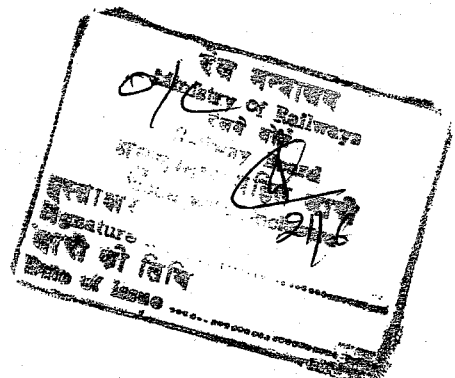 रेल मन्त्रालय
O/C Ministry of Railways
रेलवे बोर्ड
Railway Board
21/6
हस्ताक्षर
Signature
जारी की तिथि
Date of issue